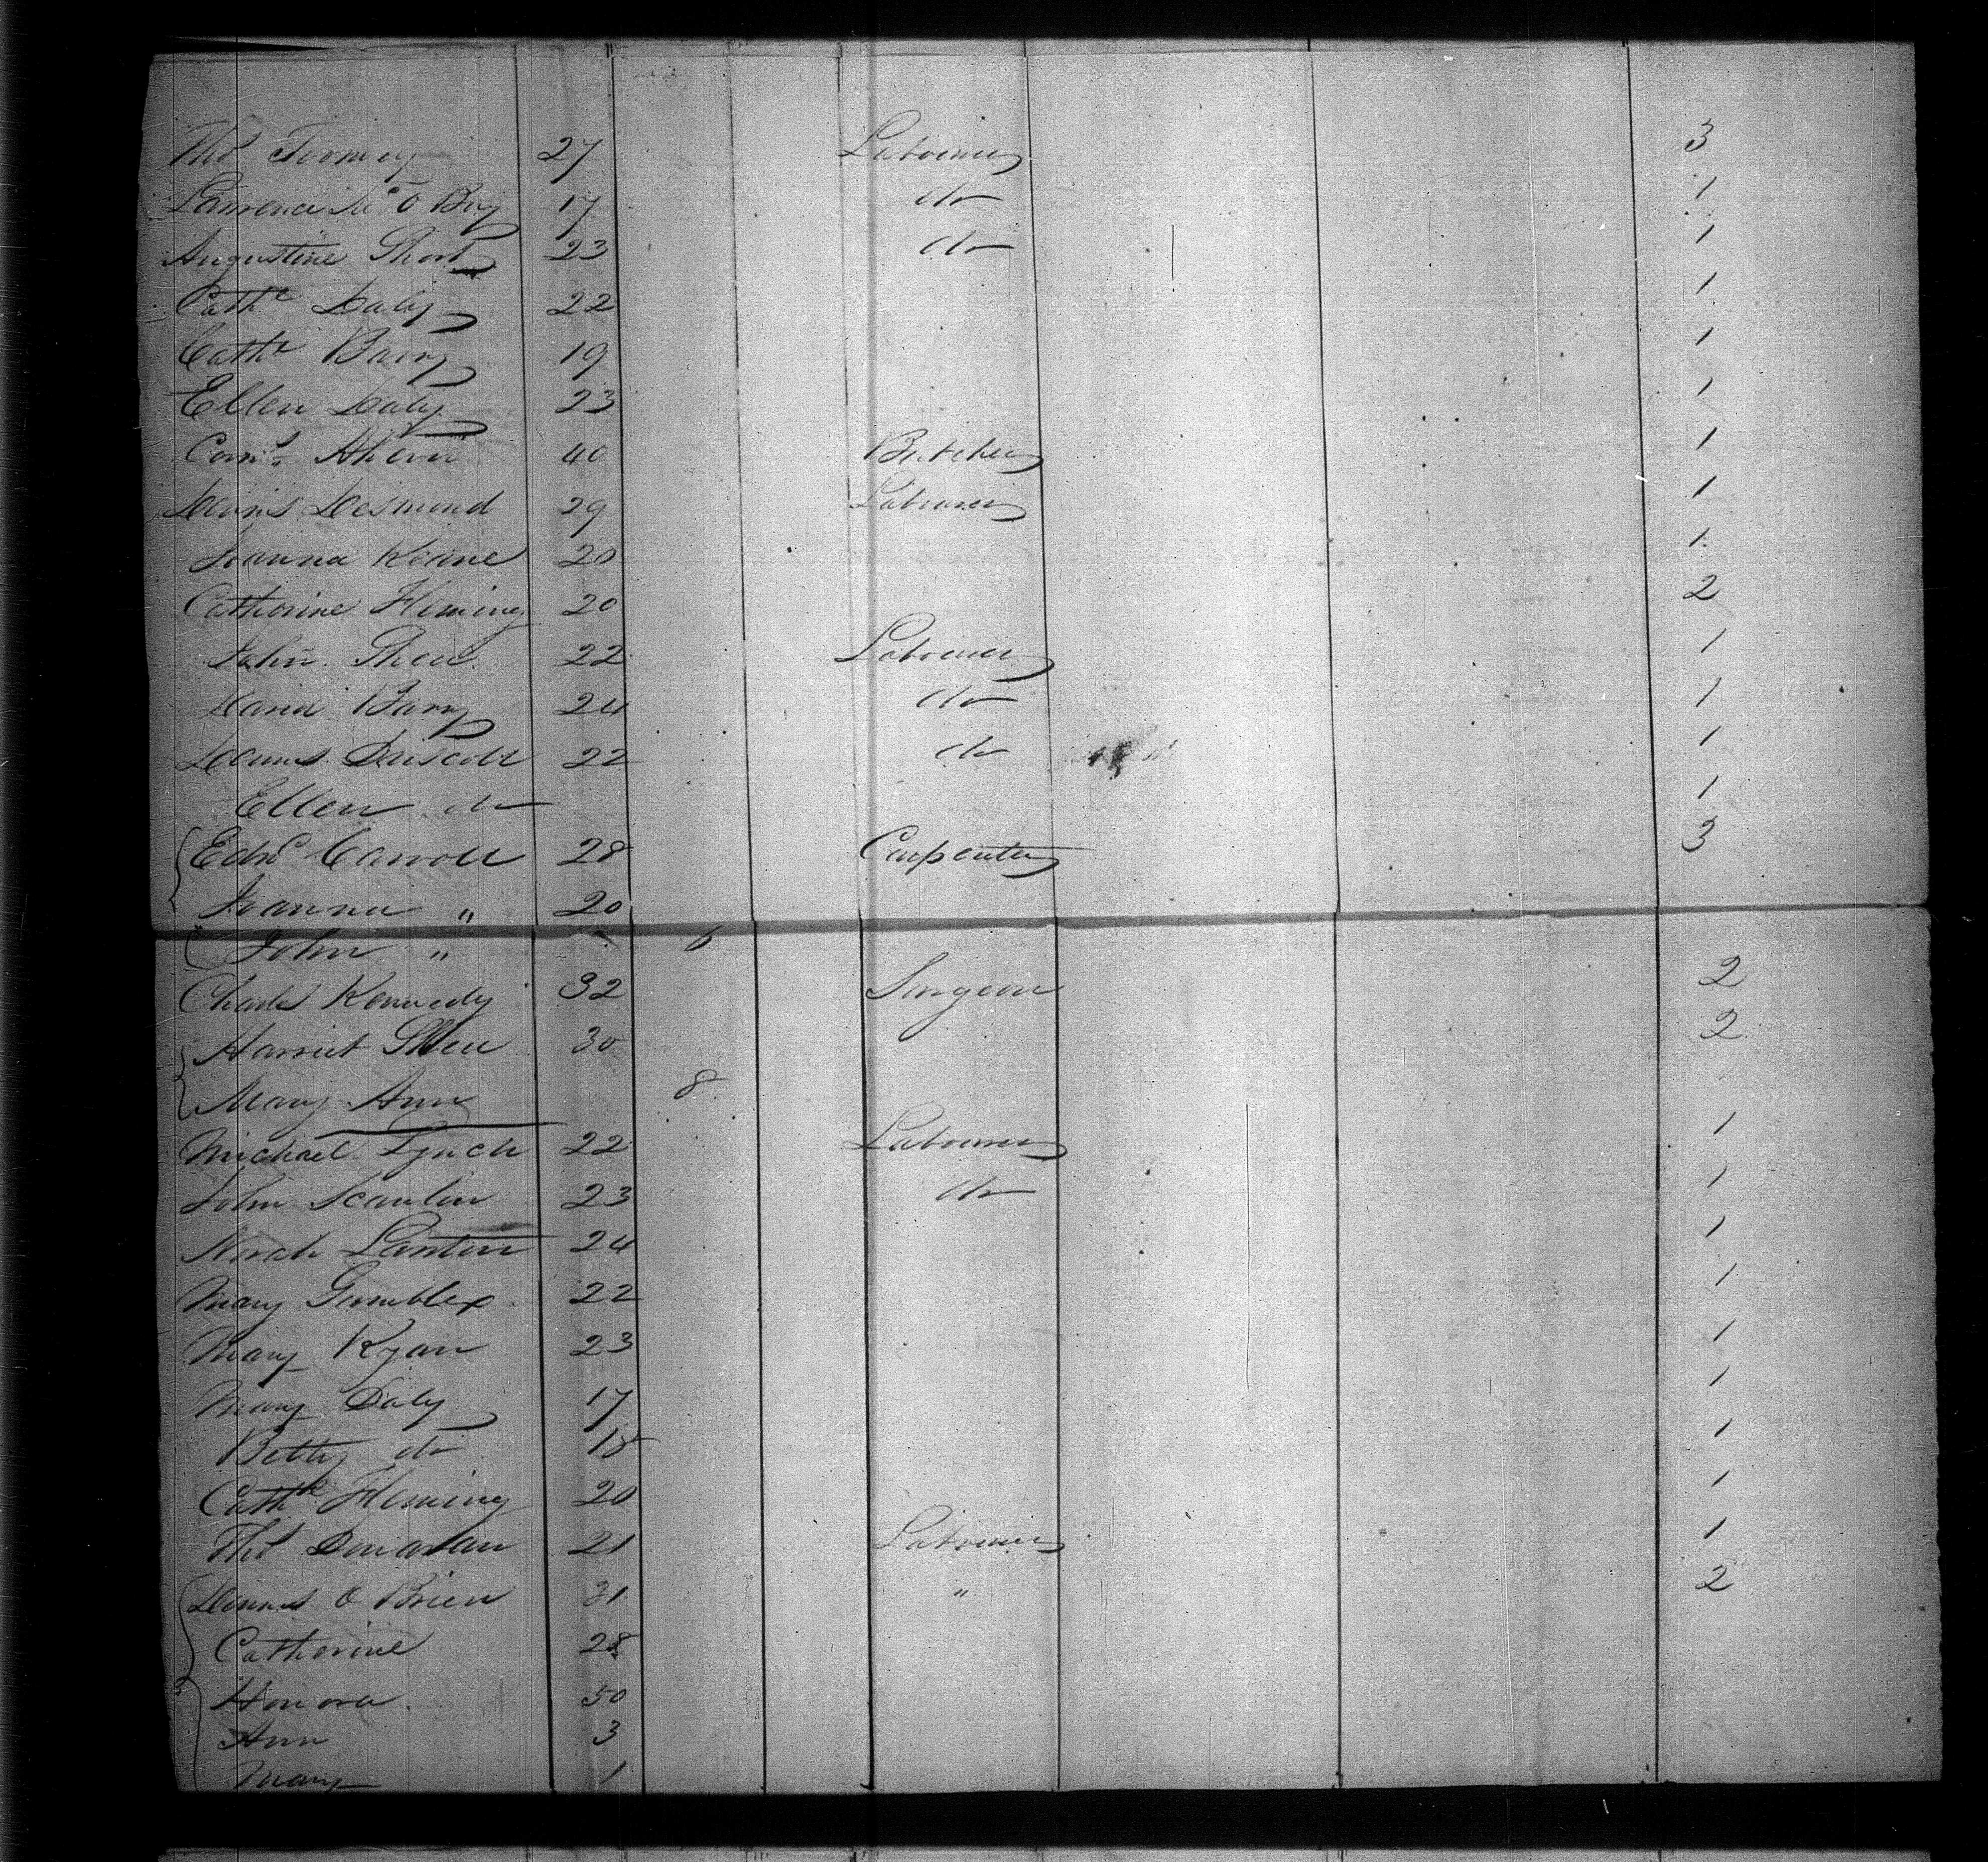 Thos Toomey 27 Labourer 3
Lawrence Mc O 17 do 1
Augustine Short 23 do 1
Cathe Daly 22 1
Cathe Barry 19 1
Ellen Daly 23 1
Corns Ahern 40 Butcher 1
Denis Desmond 29 Labourer 1
Joanna Keane 20 1
Catherine Fleming 20 2
John Shea 22 Labourer 1
David Barry 24 do 1
Dennis Driscoll 22 do 1
Ellen do 1
Edmd Carroll 28 Carpenter 3
Joanna " 20
John " 6
Charles Kennedy 32 Surgeon 2
Harriet 30 2
Mary Ann 8
Michael Lynch 22 Labourer 1
John Scanlin 23 do 1
Norah 24 1
Mary 22 1
Mary Ryan 23 1
Mary Daly 17 1
Betty do 18 1
Cathe Fleming 20 1
Thos Donavan 21 Labourer 1
Dennis O Brien 31 " 2
Catherine 28
Honora 50
Ann 3
Mary 1